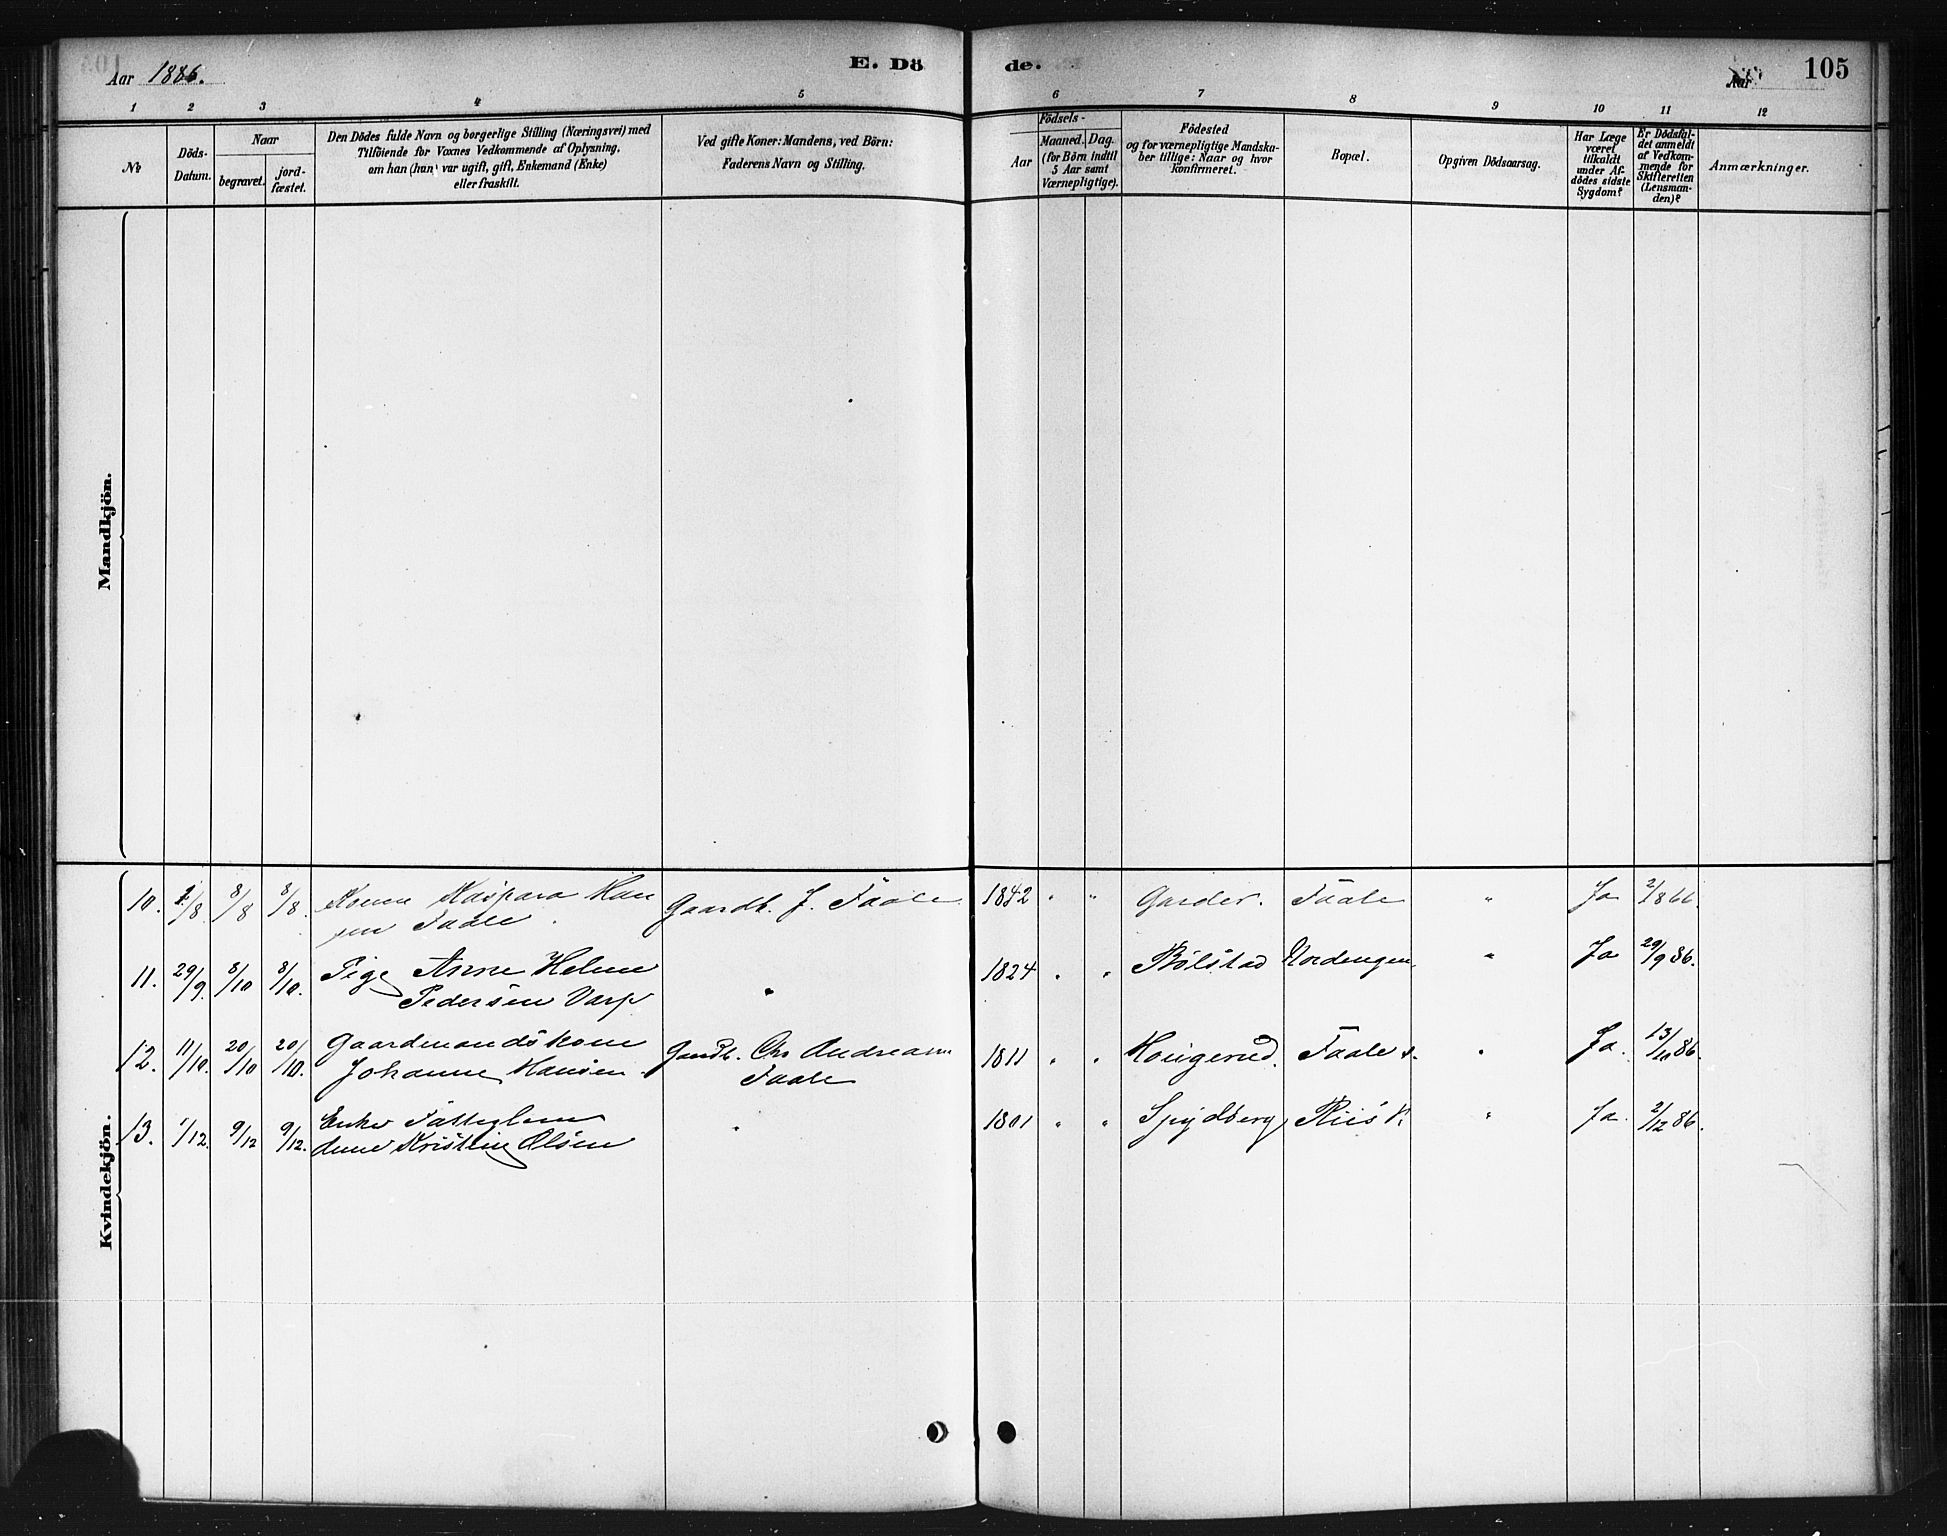 Aar 1886.
E. Dö de.
Aar
105
1 2 3 4 5 6 7 8 9 10 11 12
№
Döds-
Datum.
Naar
begravet.
jord-
fæstet.
Den Dödes fulde Navn og borgerlige Stilling (Næringsvei) med
Tilföiende for Voxnes Vedkommende af Oplysning,
om han (hun) var ugift, gift, Enkemand (Enke)
eller fraskilt.
Ved gifte Koner: Mandens, ved Börn:
Faderens Navn og Stilling.
Födsels-
Aar
Maaned.
Dag.
(for Börn indtil
5 Aar samt
Værnepligtige).
Födested
og for værnepligtige Mandska-
ber tillige: Naar og hvor
konfirmeret.
Bopæl.
Opgiven Dödsaarsag.
Har Læge
været
tilkaldt
under Af-
dödes sidste
Sygdom?
Er Dödsfal-
det anmeldt
af Vedkom-
mende for
Skifteretten
(Lensman-
den)?
Anmærkninger.
Mandkjön.
Kvindekjön.
10. /8. 8/8 8/8. Kaspara Han Gaardb. J. Faale 1842 " " Garder. Faale " Ja 2/8
sen Faale.
11. 29/9. 8/10 8/10. Pige Anne Helene " 1824 " " Bölstad Nordengen " Ja 29/9 86.
Pedersen Varp
12. 11/10. 20/10 20/10. Gaardmandskone Gaardb. Chr Andreasen 1811 " " Haugerud. Faale s. " Ja. 13/10 86.
Johanne Hansen. Faale
13. 1/12. 9/12 9/12. Enke Fattiglem " 1801 " " Spydberg Riis " Ja. 2/12 86.
Kristine Olsen